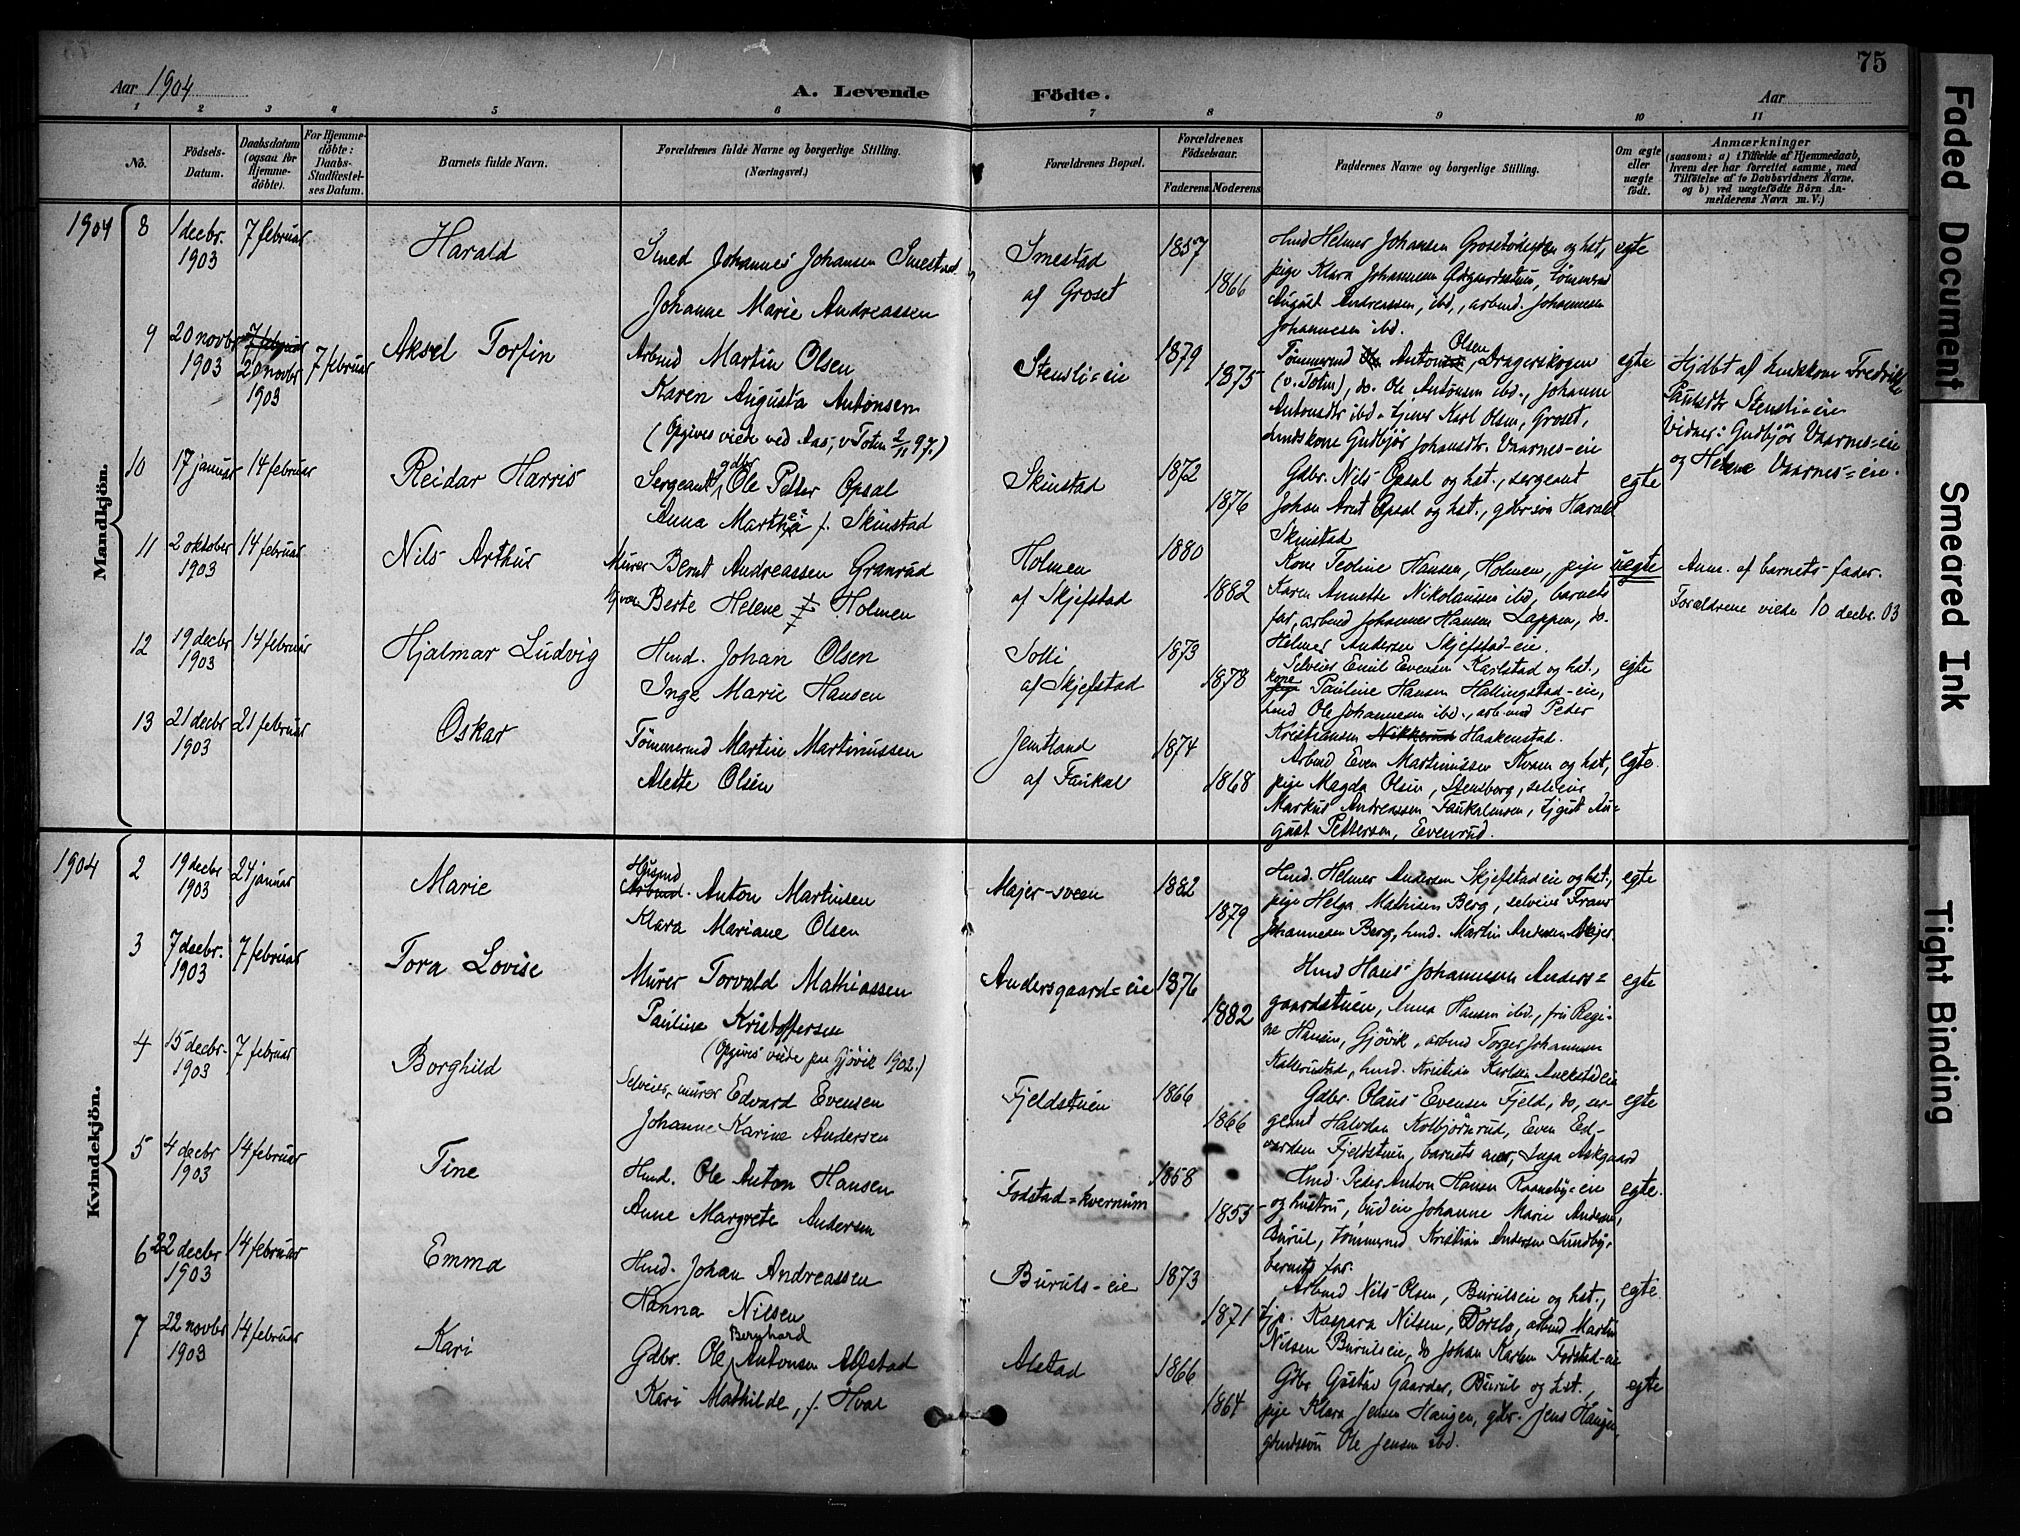 75
Aar 1904
A. Levende Födte.
Aar
1 2 3 4 5 6 7 8 9 10 11
No.
Födsels-Datum.
Daabsdatum (ogsaa for Hjemmedöbte).
For Hjemmedöbte: Daabs-Stadfæstelses Datum.
Barnets fulde Navn.
Forældrenes fulde Navne og borgerlige Stilling. (Næringsvei.)
Forældrenes Bopæl.
Forældrenes Födselsaar.
Faderens Moderens
Faddernes Navne og borgerlige Stilling.
Om ægte eller uægte födt.
Anmærkninger
(saasom: a) i Tilfælde af Hjemmedaab, hvem der har forrettet samme, med Tilföielse af to Daabsvidners Navne, og b) ved uægtefödte Börn Anmelderens Navn m. V.)
Mandkjön.
1904 8 1 decbr. 1903 7 februar
Harald
Smed Johannes Johansen Smestad
Johanne Marie Andreassen
Smestad
af Groset
1857
1866
Johannesen ibd.
egte
9 20 novbr 1903 7 februar 20 novbr 1903 7 februar
Aksel Torfin
Arbmd Martin Olsen
Karen Augusta Antonsen
(Opgives viede ved Aas, v Toten 2/11 97.)
Stensli=eie
1879
1875
(v. Toten), do. Ole Antonsen ibd., Johanne
Antonsdtr ibd., tjener Karl Olsen, Groset,
egte
Hjdbt af
Paulsdtr Stensli=eie
Vidner: Gudbjör Vaarnes=eie
og Helene Vaarnes=eie.
10 17 januar 14 februar
Reidar Harris
Sergeant, gdbr Ole Petter Opsal
Anna Marthea f. Skinstad
Skinstad
1872
1876
Gdbr. Nils Opsal og hst., sergeant
Johan Arnt Opsal og hst., gdbrsön Harald
Skinstad
egte
11 2 oktober 1903 14 februar
Nils Arthur
Murer Bernt Andreassen Granrud
Berte Helene Holmen
Holmen
af Skjefstad
1880
1882
Kone Teoline Hansen, Holmen, pige
Karen Annette Nikolaussen ibd, barnets
far, arbmd Johannes Hansen Lappen, do.
Helmer Andersen Skjefstad-eie.
uegte
Anm. af barnets fader.
Forældrene viede 10 decbr. 03
12 19 decbr 1903 14 februar
Hjalmar Ludvig
Hmd. Johan Olsen
Inge Marie Hansen
Solli
af Skjefstad
1873
1878
Selveier Emil Evensen Karlstad og hst.,
kone Pauline Hansen Hallingstad-eie,
hmd Ole Johannesen ibd., arbmd Peder
Kristiansen Nikkerud Haakenstad.
egte
13 21 decbr 1903 21 februar
Oskar
Tömmermd Martin Martinussen
Alette Olsen
Jemtland
af Faukal
1874
1868
Arbmd Even Martinussen og hst,
pige Magda Olsen, Stensborg, selveier
Markus Andreassen Faukalensen, tjgut August Pettersen, Evenrud.
egte.
Kvindekjön.
1904 2 19 decbr 1903 24 januar
Marie
Husmd Arbmd. Anton Martinsen
Klara Mariane Olsen
Majer-sveen
1882
1879
Hmd. Helmer Andersen Skjefstadeie og hst.,
pige Helga Mathisen Berg, selveier Frans
Johannesen Berg, hmd. Martin Andersen Majer-
egte
3 7 decbr. 1903 7 februar
Tora Lovise
Murer Torvald Mathiassen
Pauline Kristoffersen
(Opgives viede paa Gjøvik 1902.)
Andersgaard=eie
1876
1882
Hmd Hans Johannesen Anders=
gaardstuen, Anna Hansen ibd., fru Regine Hansen, Gjövik, arbmd Torger Johannesen
egte
4 15 decbr. 1903 7 februar
Borghild
Selveier, murer Edvard Evensen
Johanne Karine Andersen
Fjeldstuen
1866
1866
Gdbr. Olaus Evensen Fjeld, do, sergeant Halvdan Kolbjörnrud, Even Edvardsen Fjeldstuen, barnets mor, Inga Askgaard
egte
5 4 decbr 1903 14 februar
Tine
Hmd. Ole Anton Hansen
Anne Margrete Andersen
Fodstad=kvernum
1858
1853
Hmd. Peder Anton Hansen Raaneby=eie
og hustru, budeie Johanne Marie Andersen,
Burul, tömmermd Kristian Andersen Lundby,
barnets far.
egte.
6 22 decbr 1903 14 februar
Emma
Hmd. Johan Andreassen
Hanna Nilsen
Buruls-eie
1873
1871
Arbmd Nils Olsen, Burulseie og hst.,
tjp. Kaspara Nilsen, Torslo, arbmd Martin
Nilsen Burulseie, do Johan Karlsen Fodstad-eie
egte
7 22 novbr 1903 14 februar
Kari
Gdbr. Ole Bernhard Antonsen Alfstad
Kari Mathilde, f. Hval
Alstad
1866
1864
Gdbr Gustav Gaarder, Burul og hst.,
pige Klara Jensen Haugen, gdbr. Jens Haugen,
gbrdssön Ole Jensen ibd.
egte
Faded Document
Smeared Ink
Tight Binding